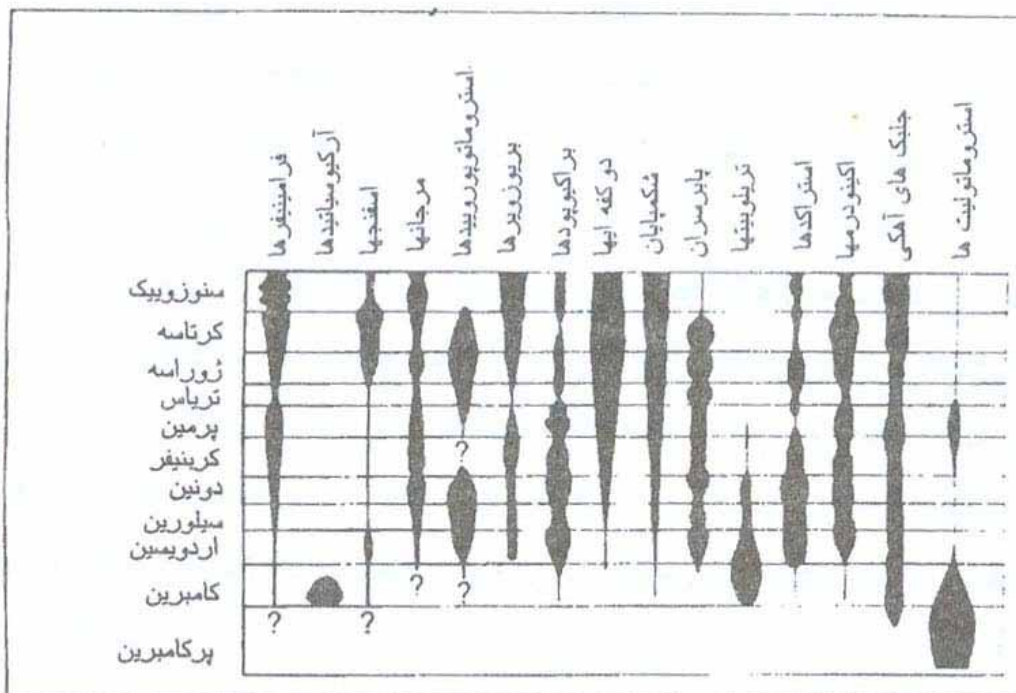 فرامینیفرها
آرکیوسیاتیدها
اسفنجها
مرجانها
استروماتوپوروییدها
بریوزویرها
براکیوپودها
دو کفه ایها
شکمپایان
پابرسران
تریلوبیتها
استراکدها
اکینودرمها
جلبک های آهکی
استروماتولیت ها
سنوزوییک
کرتاسه
ژوراسه
تریاس
پرمین
?
کربنیفر
دونین
سیلورین
اردویسین
? ?
کامبرین
? ?
پرکامبرین